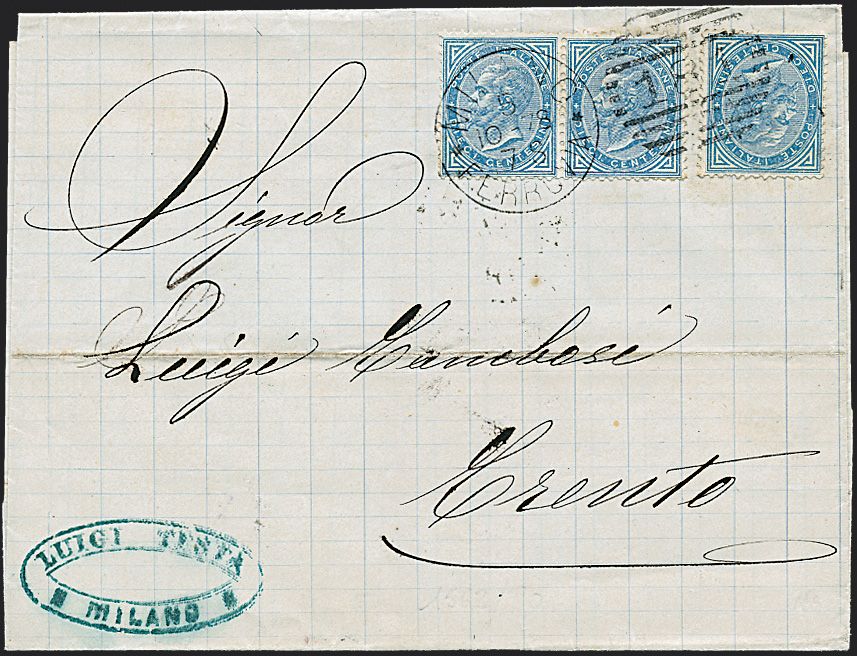 POSTE ITALIANE
DIECI CENTESIMI
POSTE ITALIANE
DIECI CENTESIMI
POSTE ITALIANE
DIECI CENTESIMI
5
10
Signor
Luigi Tambosi
Trento
LUIGI TESTA
MILANO